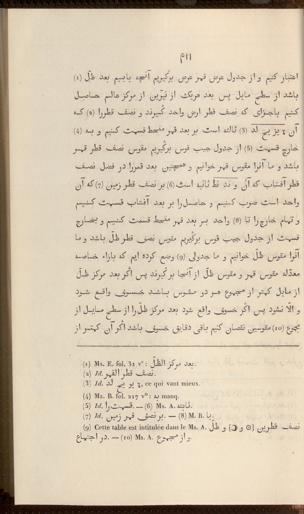 اعتبار کنیم و از جدول عرض قمر عرض برگیریم آنچه یابیم بعد ظلّ (1)
باشد از سطح مایل پس بعد هریک از نیّرین از مرکز عالم حاصل
کنیم باجزای که نصف قطر ارض واحد گیرند و نصف قطررا (2) که
(3) ثالثه است بر بعد قمر منقسط قسمت کنیم و به (4)
خارج قسمت (5) از جدول جیب قوس برگیریم مقوس نصف قطر قمر
باشد و ما آنرا مقوس قمر خوانیم و همچنین بعد قمررا در فضل نصف
قطر آفتاب که ثانیه است (6) بر نصف قطر زمین (7) که آن
واحد است ضرب کنیم و حاصل را بر بعد آفتاب قسمت کنیم
و تمام خارج را تا (8) واحد بر بعد قمر منقسط قسمت کنیم و بخارج
قسمت از جدول جیب قوس برگیریم مقوس نصف قطر ظلّ باشد و ما
آنرا مقوس ظلّ خوانیم و ما جدولی (9) وضع کرده ایم که بازاء خاصه
معدّله مقوس قمر و مقوس ظلّ از آنجا برگیرند پس اگر بعد مرکز ظلّ
از مایل کمتر از مجموع هر دو مقوس باشد خسوف واقع شود
و الّا نشود پس اگر خسوف واقع شود بعد مرکز ظلّ را از سطح مایل از
مجموع (10) مقوسین نقصان کنیم باقی دقایق خسوف باشد اگر آن کمتر از
(1) Ms. E. fol. 31 v°: بعد مرکز الظلّ.
(2) Id. نصف قطر القمر.
(3) Id. ce qui vaut mieux.
(4) Ms. B. fol. 217 v°: به manq.
(5) Id. قسمت را. — (6) Ms. A. ثالثه.
(7) Id. بر نصف قمر زمین. — (8) M. B. با.
(9) Cette table est intitulée dans le Ms. A. نصف قطرین (☉ و ☽) و ظلّ
در اجتماع. — (10) Ms. A. و از مجموع.